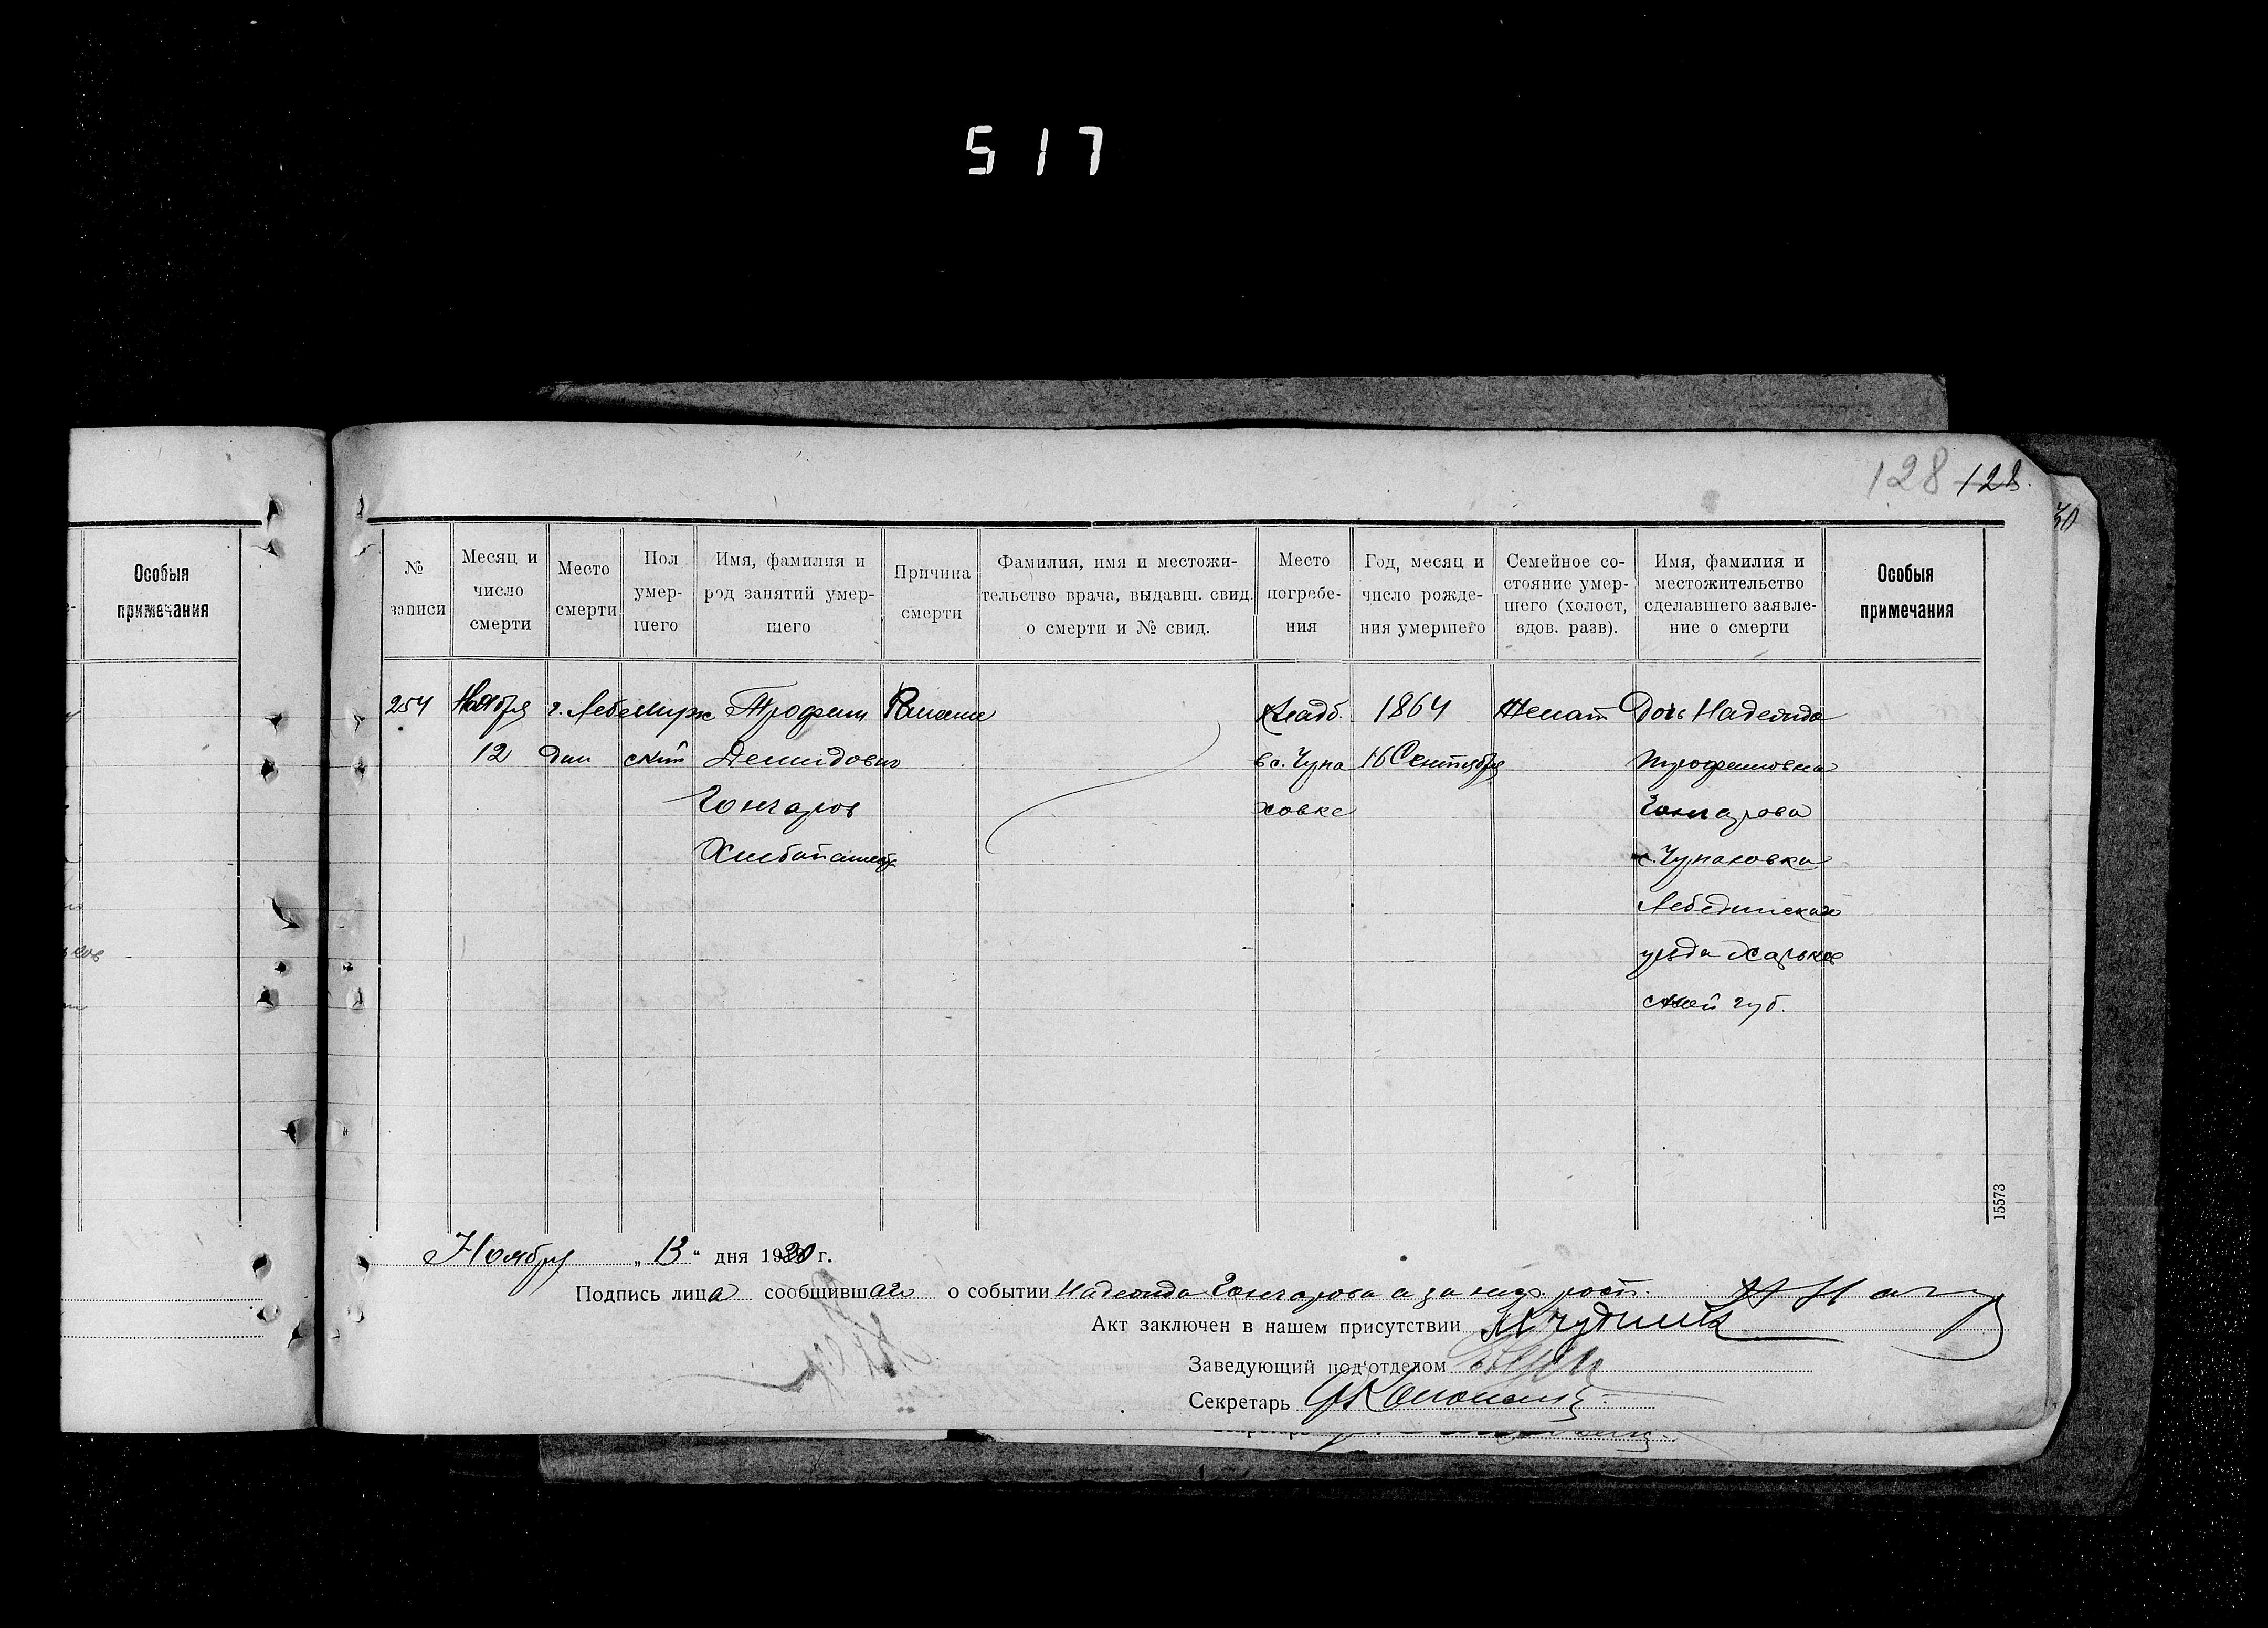 517
128 128.
30
Особыя
примечания
№
записи
Месяц и
число
смерти
Место
смерти
Пол
умер-
шего
Имя, фамилия и
род занятий умер-
шего
Причина
смерти
Фамилия, имя и местожи-
тельство врача, выдавш. свид.
о смерти и № свид.
Место
погребе-
ния
Год, месяц и
число рожде-
ния умершего
Семейное со-
стояние умер-
шего (холост,
вдов. разв).
Имя, фамилия и
местожительство
сделавшего заявле-
ние о смерти
Особыя
примечания
254
Ноября
12
г. Лебе
дин
мужс
ский
Трофим
Демидович
Гончаров
Хлебопашец
Ранение
Кладб.
в с. Чупа
ховке
1864
16 Сентября
Женат
Дочь Надежда
Трофимовна
Гончарова
с. Чупаховка
Лебединскаго
уезда Харьков
ской губ.
15573
Ноября „ 13 “ дня 1920 г.
Подпись лица сообщившаго о событии Надежда Гончарова а за
Акт заключен в нашем присутствии
Заведующий под'отделом
Секретарь
Секретарь